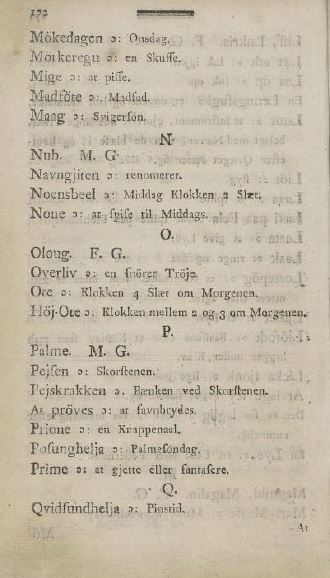 172
Mökedagen ɔ: Onsdag.
Mörkeregn ɔ: en Skuffe.
Mige ɔ: at pisse.
Madföte ɔ: Madfad.
Maag ɔ: Svigerson.
N.
Nub. M. G.
Navngjiten ɔ: renomeret.
Noensbeel ɔ: Middag Klokken 2 Slæt.
None ɔ: at spise til Middags.
O.
Oloug. F. G.
Overliv ɔ: en snörer Tröje.
Ote ɔ: Klokken 4 Slæt om Morgenen.
Höj-Ote ɔ: Klokken mellem 2 og 3 om Morgenen.
P.
Palme. M. G.
Pejsen ɔ: Skorstenen.
Pejskrakken ɔ: Bænken ved Skorstenen.
At pröves ɔ: at favnbrydes.
Prione ɔ: en Knappenaal.
Posunghelja ɔ: Palmesöndag.
Prime ɔ: at gjette eller fantasere.
Q.
Qvidsundhelja ɔ: Pintstid.
At